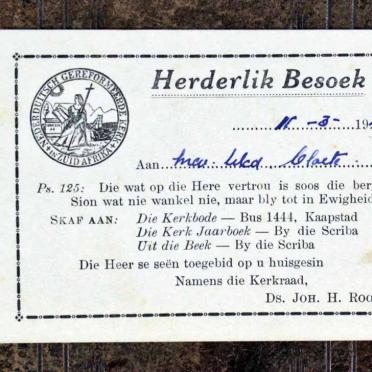 NEDERDUITSCH GEREFORMEERDE KERK
IN ZUID AFRIKA
Herderlik Besoek
11-3-19
Aan Mev. Cloete
Ps. 125: Die wat op die Here vertrou is soos die ber
Sion wat nie wankel nie, maar bly tot in Ewighe
SKAF AAN: Die Kerkbode — Bus 1444, Kaapstad
Die Kerk Jaarboek — By die Scriba
Uit die Beek — By die Scriba
Die Heer se seën toegebid op u huisgesin
Namens die Kerkraad,
Ds. JOH. H. ROO